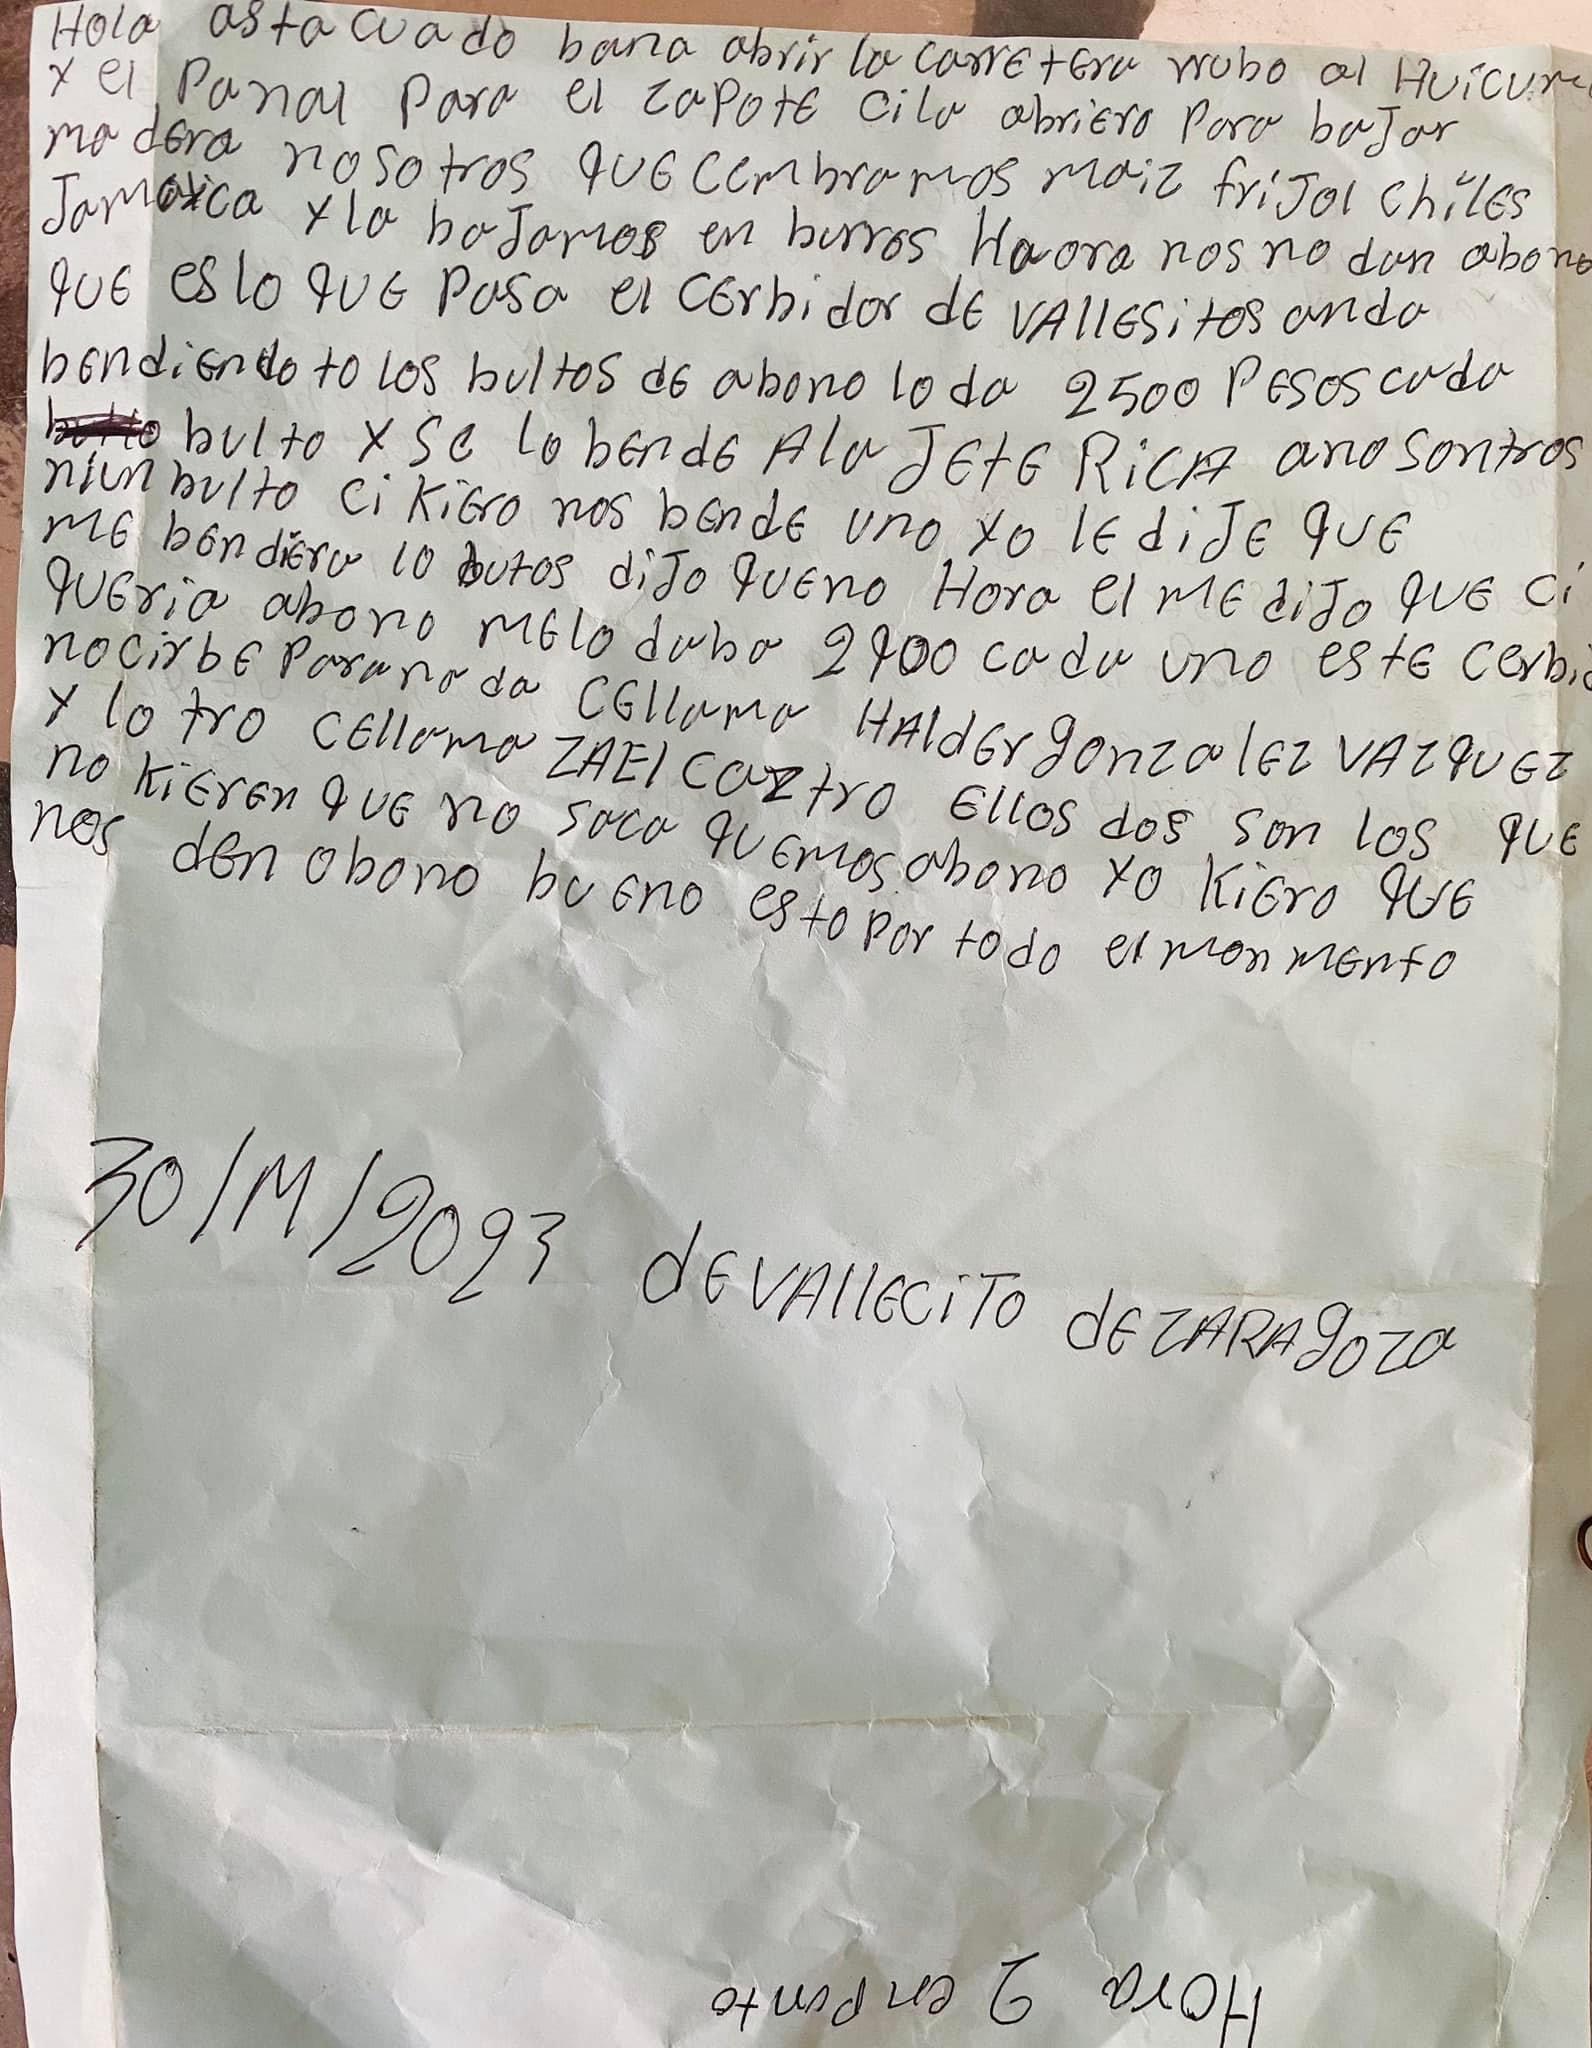 Hola asta cuado bana abrir la carretera rrubo al Huicum
y el Panal Para el zapote cila abriero Para bajar
madera nosotros que cembramos maiz frijol chiles
Jamaica y la bajamos en burros Haora nos no dan abono
que es lo que pasa el cerbidor de vallesitos anda
bendiendo to los bultos de abono lo da 2500 pesos cada
bulto y se lo bende Ala Jete Rica anosontros
niun bulto ci kiero nos bende uno yo le dije que
me bendiera 10 butos dijo queno Hora el me dijo que ci
queria abono melo daba 2900 cada uno este cerbid
nocirbe paranada cellama Halder gonzalez vazquez
y lotro cellama Zael caztro ellos dos son los que
no kieren que no saca quemos abono yo kiero que
nos den abono bueno esto por todo el monmento
30/M/2023 de vallecito de zaragoza
Hora 2 en punto